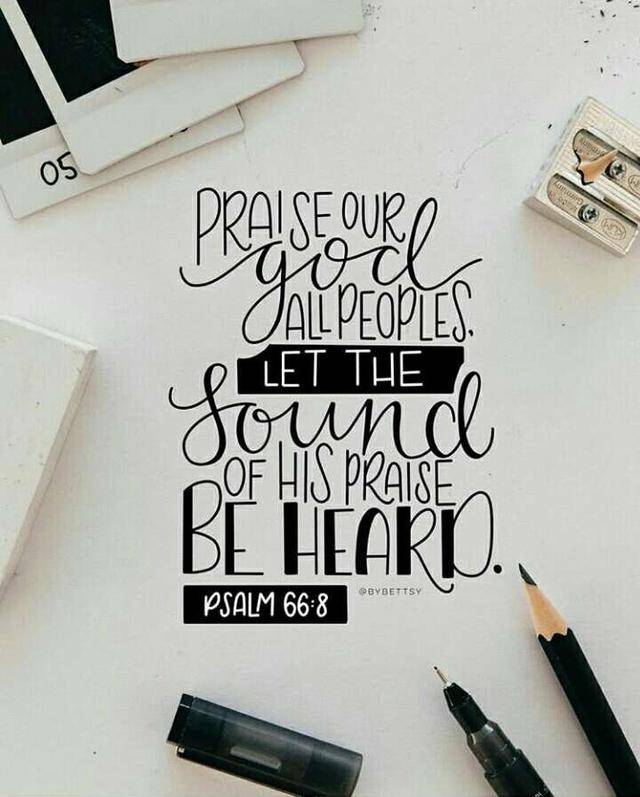 05
PRAISE OUR
god
ALL PEOPLES.
LET THE
Sound
OF HIS PRAISE
BE HEARD.
@BYBETTSY
PSALM 66:8